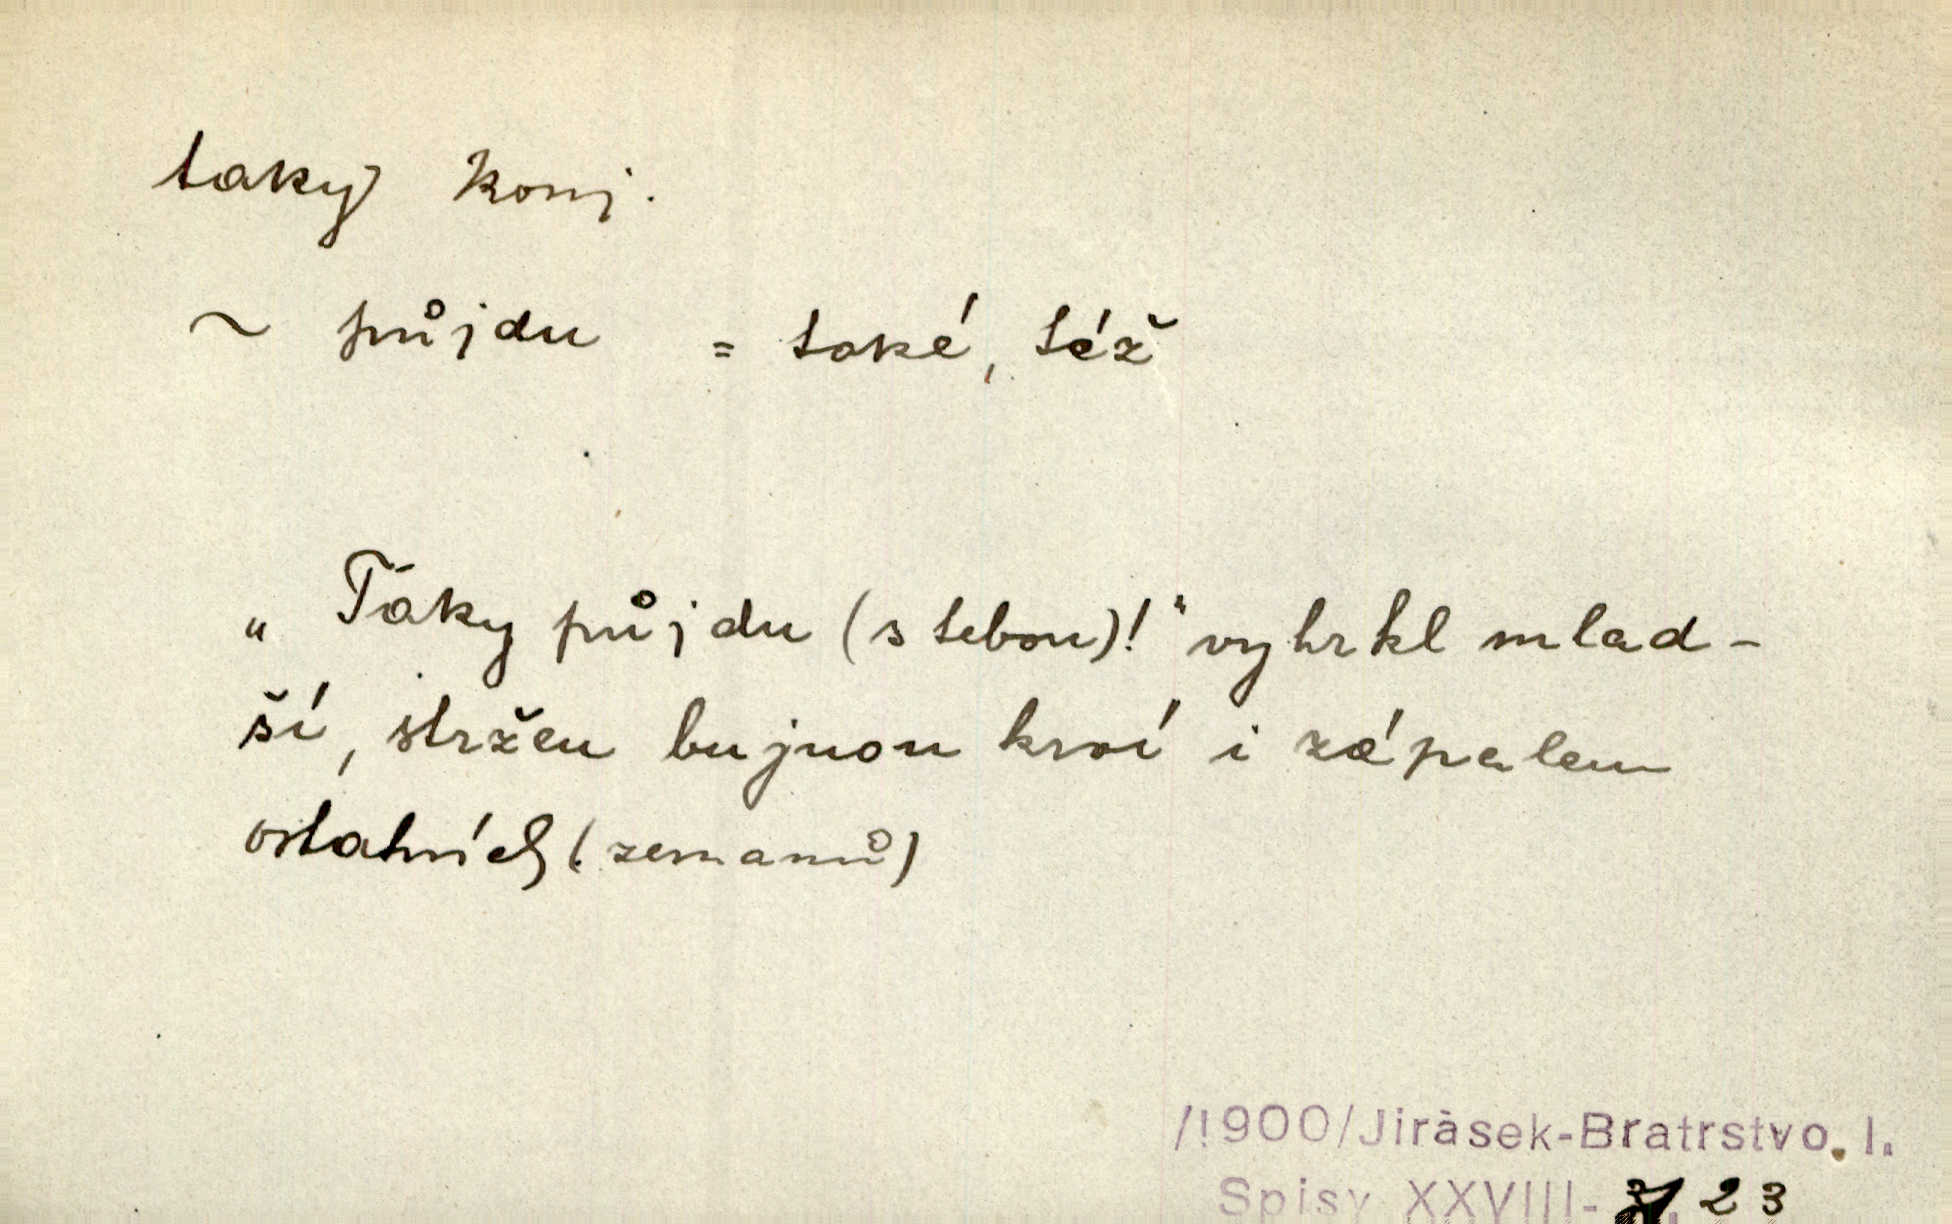 taky konj.
~ půjdu = také, též
„Taky půjdu (s tebou)!" vyhrkl mlad-
ší, stržen bujnou krví i zápalem
ostatních (zemanů)
/1900/Jirásek-Bratrstvo. I.
Spisy XXVIII- 23